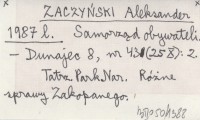 ZACZYŃSKI Aleksander
1987 l. Samorząd obywateli.
– Dunajec 8, nr 43 (25 X): 2.
Tatrz. Park. Nar. Różne
sprawy Zakopanego.